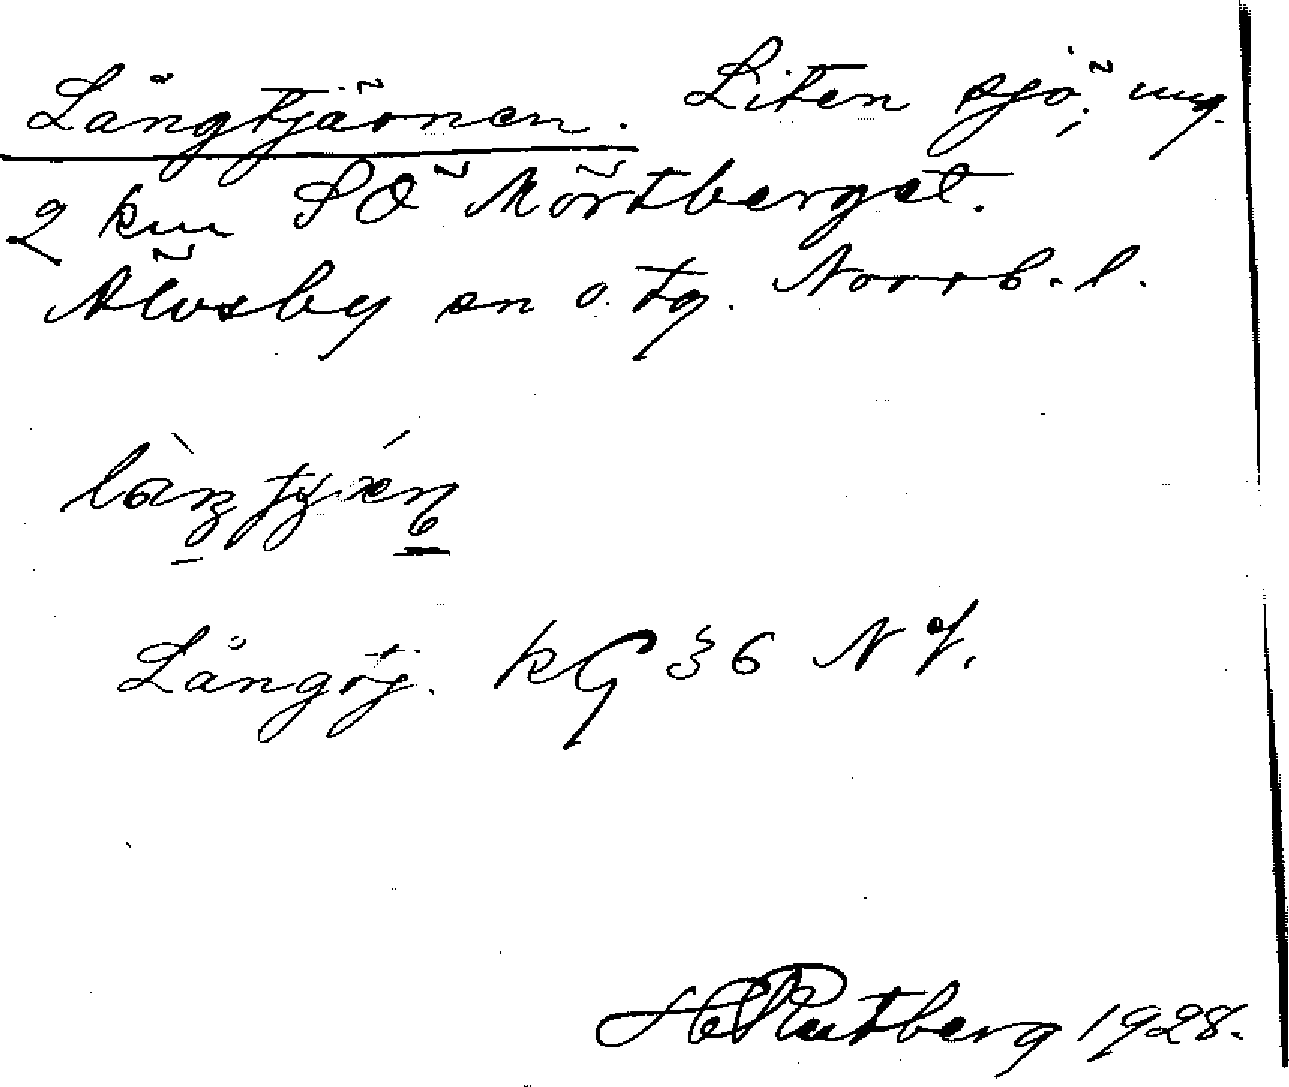 Långtjärnen. Liten sjö, ung.
2 km SÖ Mörtberget.
Älvsby sn o. tg. Norrb. l.
Långtj. kG 36 NV.
H Rutberg 1928.